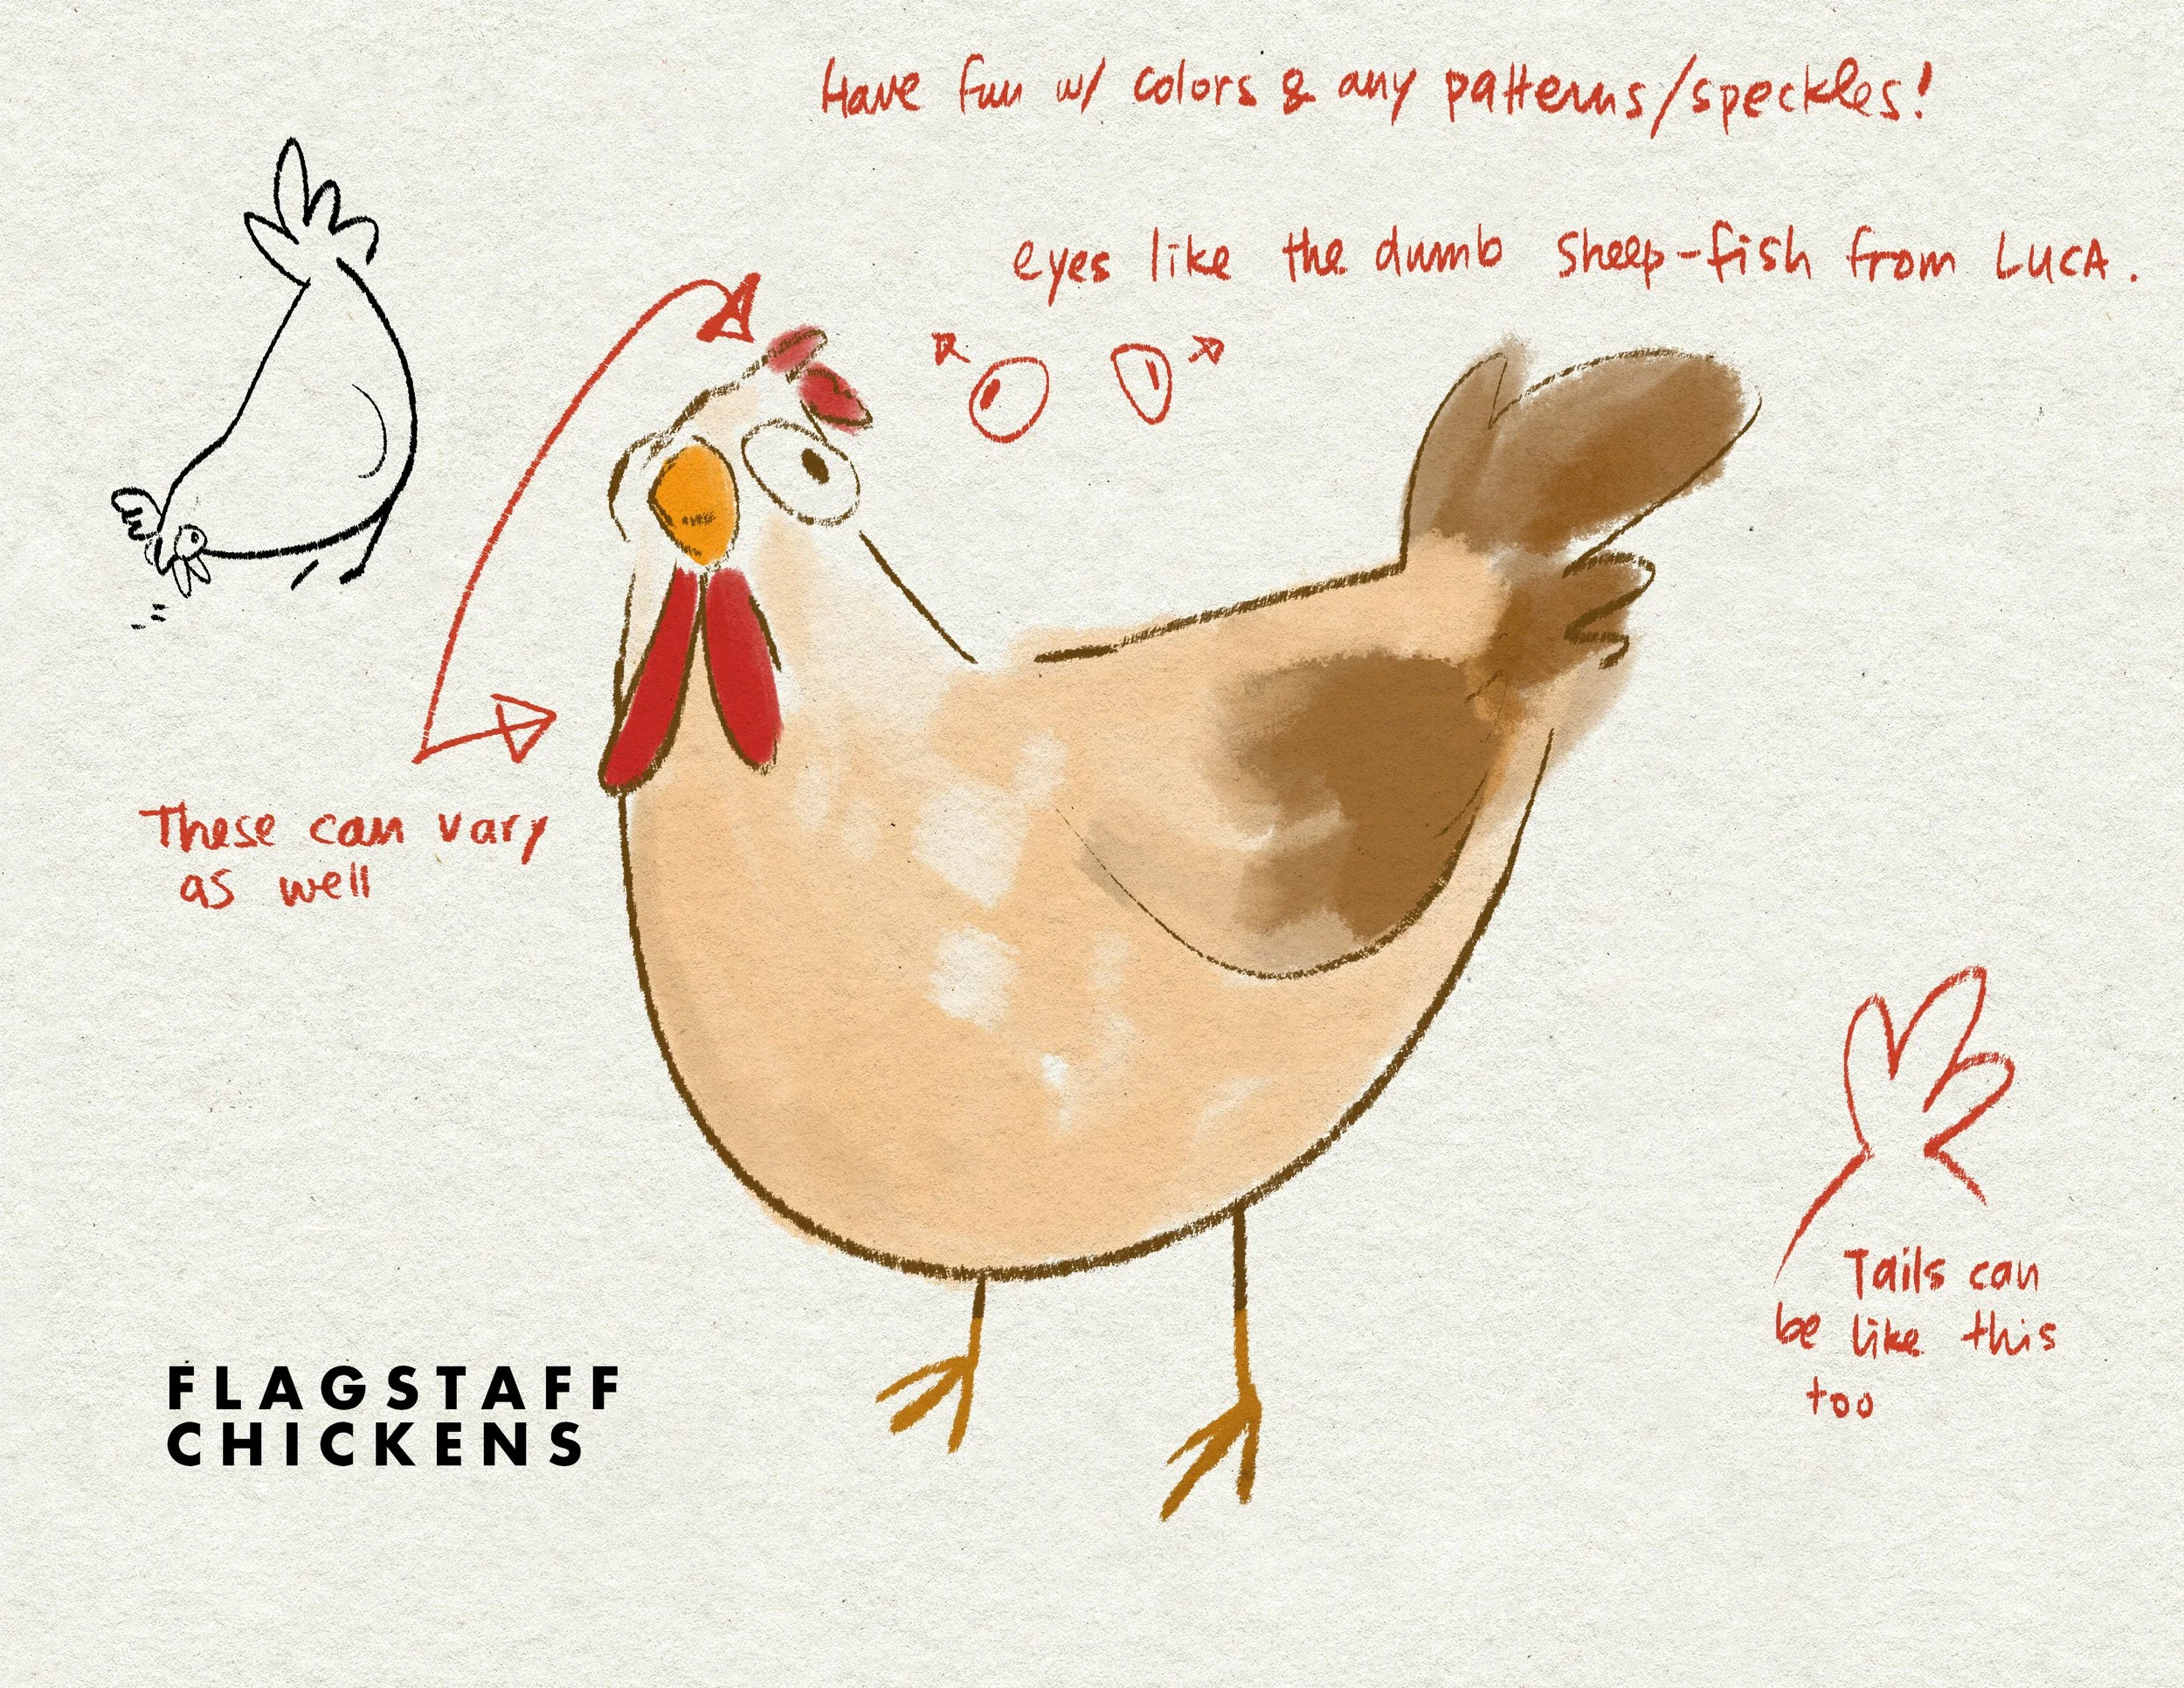 Have fun w/ colors & any patterns/speckles!
eyes like the dumb sheep-fish from LUCA.
These can vary
as well
Tails can
be like this
too
FLAGSTAFF
CHICKENS